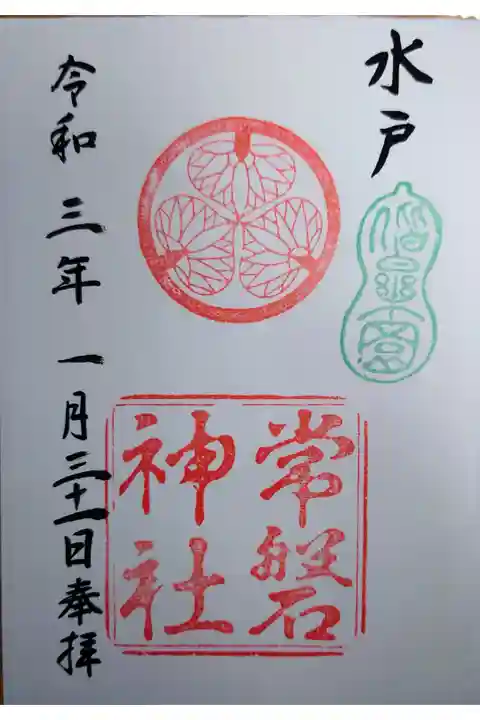 水戸
偕楽園
常磐
神社
令和三年一月三十一日奉拝